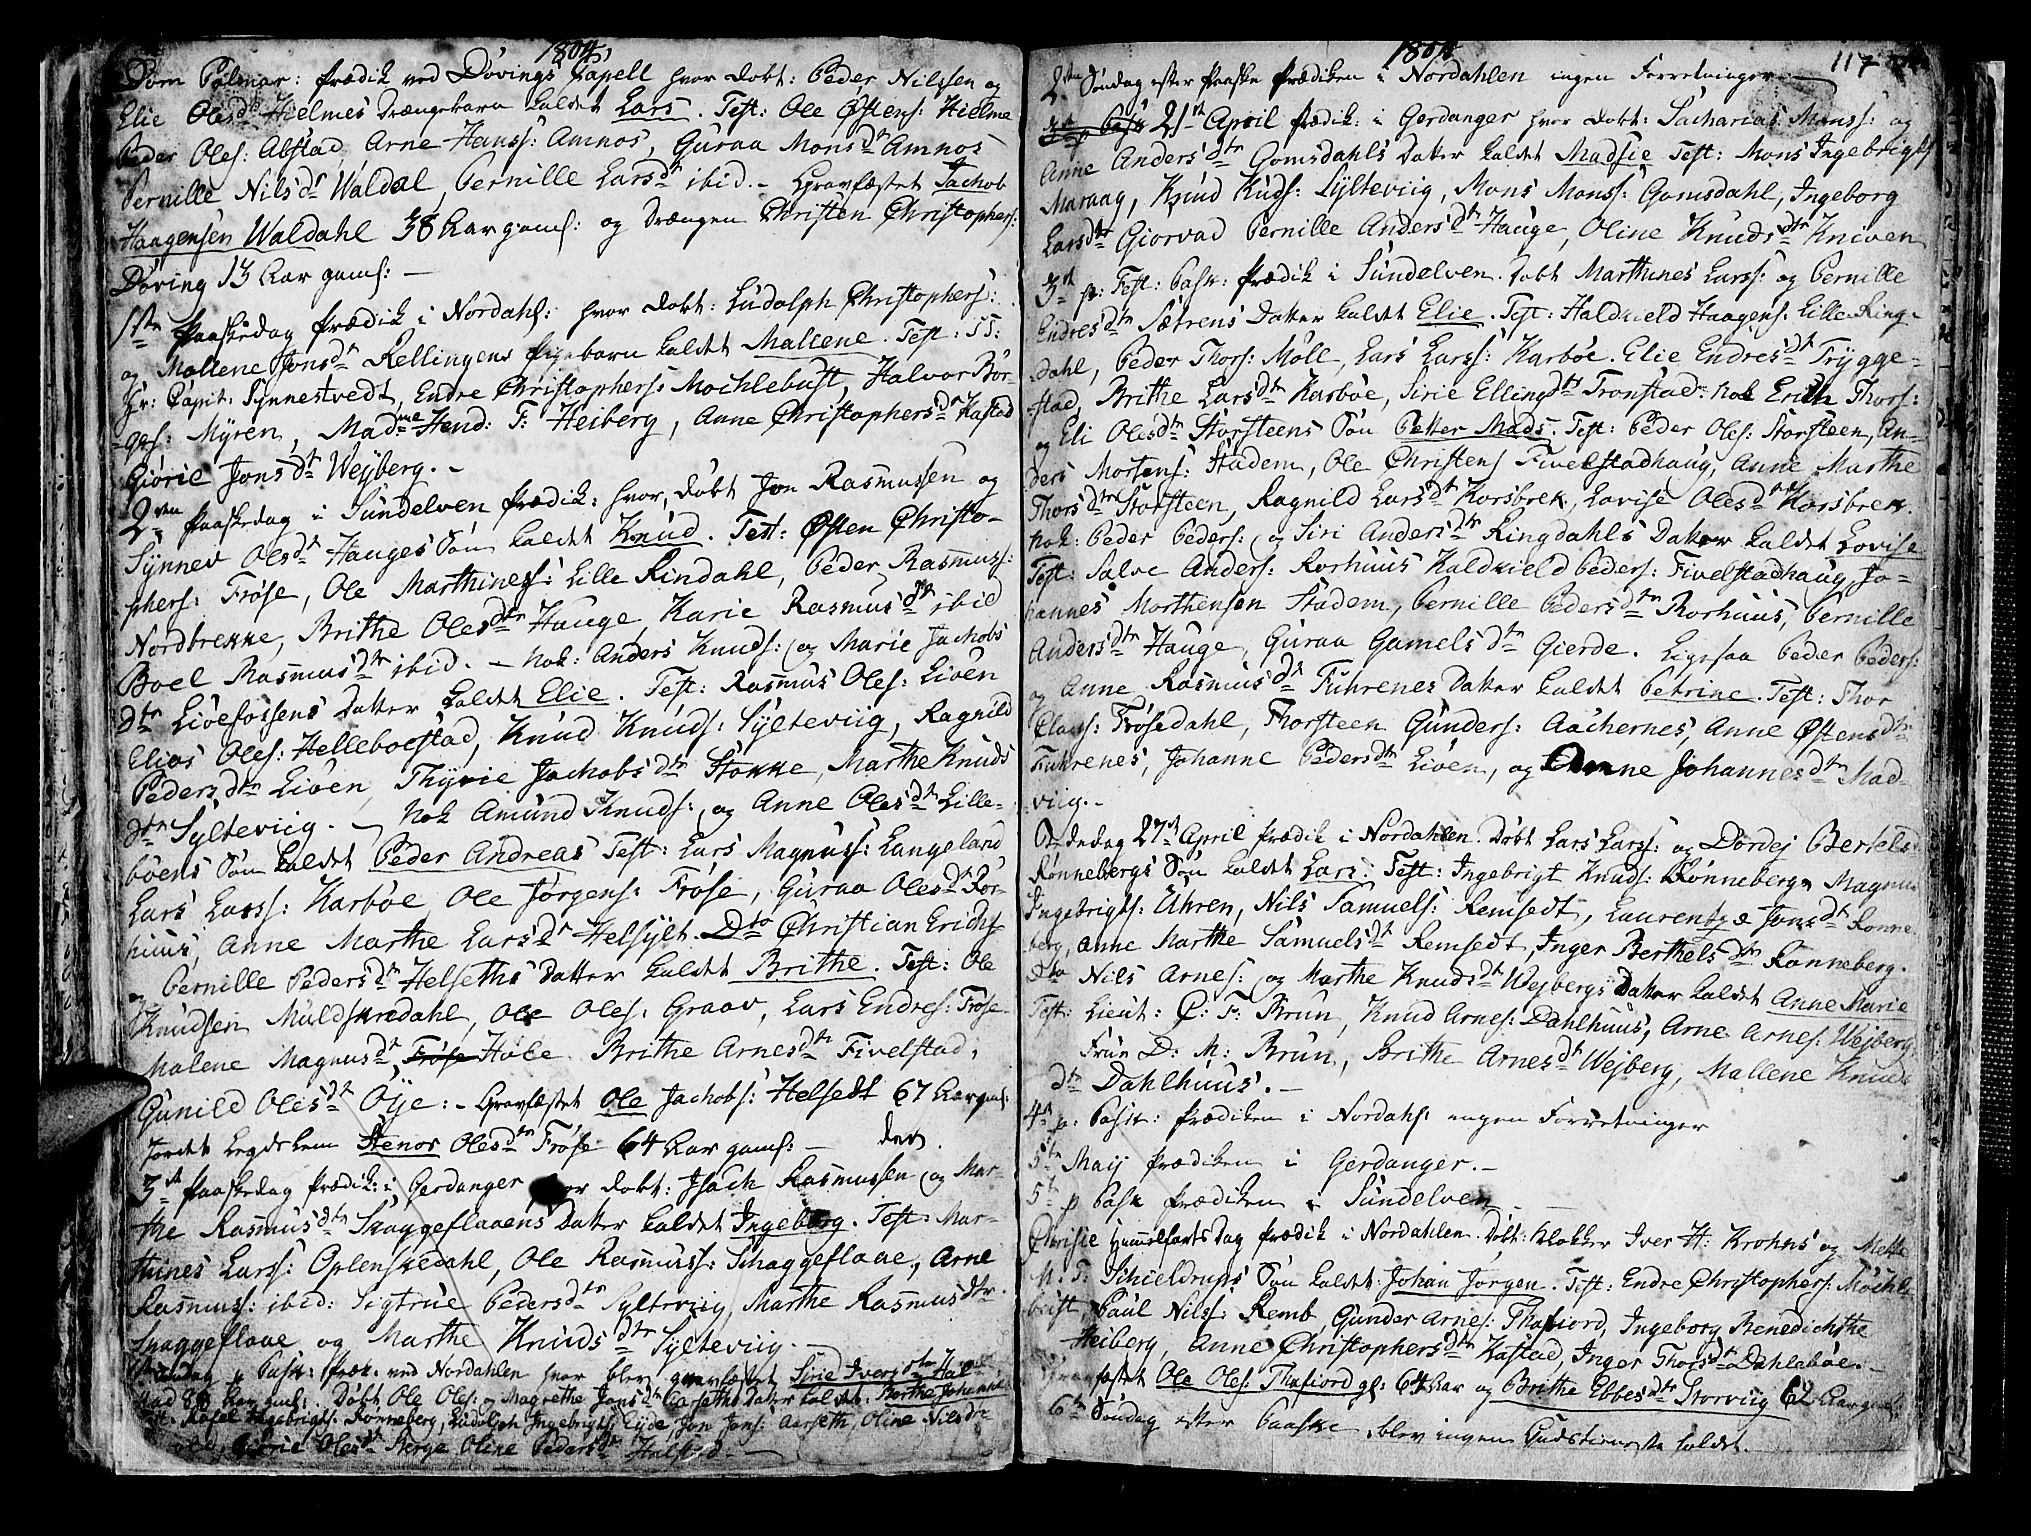 1804
Dom Palmar: prædik ved Døvings Capell hvor døbt: Peder Nilssen og
Elie Olesdr Hielmes Drængebarn kaldet Lars. Test: Ole Østens: Hielme
Peder Oles: Alstad, Arne Hanss: Amnos, Guraa Monsdr Amnos
Pernille Nilsdr Waldal, Pernille Larsdr ibid. - Gravfæstet Jachob
Haagensen Waldahl 38 Aar gaml: og Drængen Christen Christophers:
Døving 13 Aar gaml: -
1ste Paaskedag prædik i Nordahl: hvor døbt: Ludolph Christophers:
og Mallene Jonsdr Rellingens Pigebarn kaldet Mallene. Test: SS:
Hr: Capit: Synnestvedt, Endre Christophers: Mochlebust, Halvor Bør-
ges: Myren, Madme Hend: F: Heiberg, Anne Christophersdr Kastad
Giørie Jonsdr Wejberg. -
2den Paaskedag i Sundelven prædik: hvor døbt Jon Rasmussen og
Synnev Olesdtr Hauges Søn kaldet Knud. Test: Østen Christo-
phers: Frøse, Ole Marthiness: Lille Rindahl, Peder Rasmuss:
Nordbrekke, Brithe Olesdtr Hauge, Karie Rasmusdtr ibid
Boel Rasmusdtr ibid. - Nok: Anders Knuds: og Marie Jachobs
dtr Liøefossens Datter kaldet Elie. Test: Rasmus Oles: Liøen
Elias Oles: Helleboestad, Knud Knuds: Sylteviig, Ragnild
Pedersdtr Liøen, Thyrie Jachobsdtr Stokke, Marthe Knuds
dtr Sylteviig. - Nok Amund Knuds: og Anne Olesdtr Lille-
bøens Søn kaldet Peder Andreas Test: Lars Magnuss: Langeland
Lars Larss: Karbøe Ole Jørgens: Frøse, Guraa Olesdtr Ror-
huus, Anne Marthe Larsdr Helsylt. Dto Christian Erichs:
og Pernille Pedersdtr Helseths Datter kaldet Brithe. Test: Ole
Knudsen Muldskredahl, Ole Oles: Graav, Lars Endres: Frøse
Malene Magnusdtr Frøse Høle Brithe Arnesdtr Fivelstad,
Gunild Olesdtr Øije: - Gravfæstet Ole Jachobs: Helsedt 67 Aar gaml:
Jordet Legdslem Stenor Olesdtr Frøse 64 Aar gaml: - den.
3die Paaskedag prædik: i Gerdanger hvor døbt: Isach Rasmussen og Mar-
the Rasmusdtr Skaggeflaaens Datter kaldet Ingeborg. Test: Mar-
thines Larss: Oplenskedahl, Ole Rasmuss: Schaggeflaae, Arne
Rasmuss: ibid: Sigtrue Pedersdtr Sylteviig, Marthe Rasmusdtr.
Skaggeflaae og Marthe Knudsdtr Sylteviig. -
1ste Søndag p Pask: præk: ved Nordahlen hvor blev gravfæstet Sirie Iversdtr Hal-
stad 88 Aar gml: Døbt Ole Oles: og Magrethe Jonsdtr Aarseths Datter kaldet: Berthe Johanne
Test: Ingebrigts: Rønneberg, Ludolph Ingebrigts: Eyde, Jon Jons: Aarseth, Oline Nilsdtr
Giørie Olesdtr Berge Oline Pedersdtr Halstad. -
1804
117
2den Søndag efter Paaske Prædiken i Nordahlen ingen Forretninger -
21de April prædik: i Gerdanger hvor døbt: Sacharias Monss: og
Anne Andersdtr Gomsdahls Datter kaldet Madsie Test: Mons Ingebrigts
Maraag, Knud Kuds: Sylteviig, Mons Monss: Gomsdahl, Ingeborg
Larsdtr Giørvad Pernille Andersdtr Hauge, Oline Knudsdtr Kniven
3die p: Test: Pask: prædik i Sundelven. Døbt Marthines Larss: og Pernille
Endresdtr Sætrens Datter kaldet Elie. Test: Haldkield Haagens: Lille-Ring-
dahl, Peder Thors: Møll, Lars Larss: Karbøe. Elie Endresdtr Trygge-
stad, Brithe Larsdtr Karbøe, Sirie Ellingsdtr Tronstad: Nok Erich Thors:
og Eli Olesdtr Storsteens Søn Petter Mads. Test: Peder Oles: Storsteen, An-
ders Mortens: Stadem, Ole Christens Fivelstadhaug, Anne Marthe
Thorsdtr Storsteen, Ragnild Larsdtr Korsbrek, Lovise Olesdtr Korsbrek.
Nok: Peder Peders: og Siri Andersdtr Ringdahls Datter kaldet Lovise
Test: Salve Anders: Rorhuus Haldkield Peders: Fivelstadhaug, Jo-
hannes Morthensen Stadem, Pernille Pedersdtr Rorhuus, Pernille
Andersdtr Hauge, Guraa Gamelsdtr Gierde. Ligesaa Peder Peders:
og Anne Rasmusdtr Fuhrenes Datter kaldet Petrine. Test: Thor
Claus: Frøsedahl, Thorsteen Gunders: Aachernes, Anne Østensdtr
Fuhrenes, Johanne Pedersdtr Liøen, og Anne Johannesdtr Mad-
viig. -
Bededag 27de April prædik i Nordahlen. Døbt Lars Larss: og Dordej Bertels
Rønnebergs Søn kaldet Lars: Test: Ingebrigt Knuds: Rønneberg Magnus
Ingebrigts: Uhren, Nils Samuels: Remsedt, Laurentze Jonsdtr Rønne
berg, Anne Marthe Samuelsdtr Remsedt, Inger Berthelsdtr Rønneberg.
Dto Nils Arnes: og Marthe Knudsdtr Wejbergs Datter kaldet Anne Marie
Test: Lieut: C: F: Brun, Knud Arnes: Dahlhuus, Arne Arnes: Wejberg
Frue D: M: Brun, Brithe Arnesdtr Wejberg, Mallene Knuds
dtr Dahlhuus. -
4de p: Pask: Prædiken i Nordahl: ingen Forretninger
5te Maij Prædiken i Gerdanger. -
5te p Pask Prædiken i Sundelven -
Christi Himmelfarts Dag prædik i Nordahlen. Døbt: Klokker Iver H: Krohns og Mette
M: F: Schieldrups Søn kaldet: Johan Jørgen. Test: Endre Christophers: Møchle
bust, Paul Nilss: Remb, Gunder Arnes: Thafiord, Ingeborg Benedichthe
Heiberg, Anne Christophersdtr Kastad, Inger Thorsdtr Dahlebøe. -
Gravfæstet Ole Oles: Thafiord gl: 64 Aar og Brithe Ebbesdtr Storviig 62 Aar gaml:
6te Søndag efter Paaske blev ingen Gudstieneste holdet.